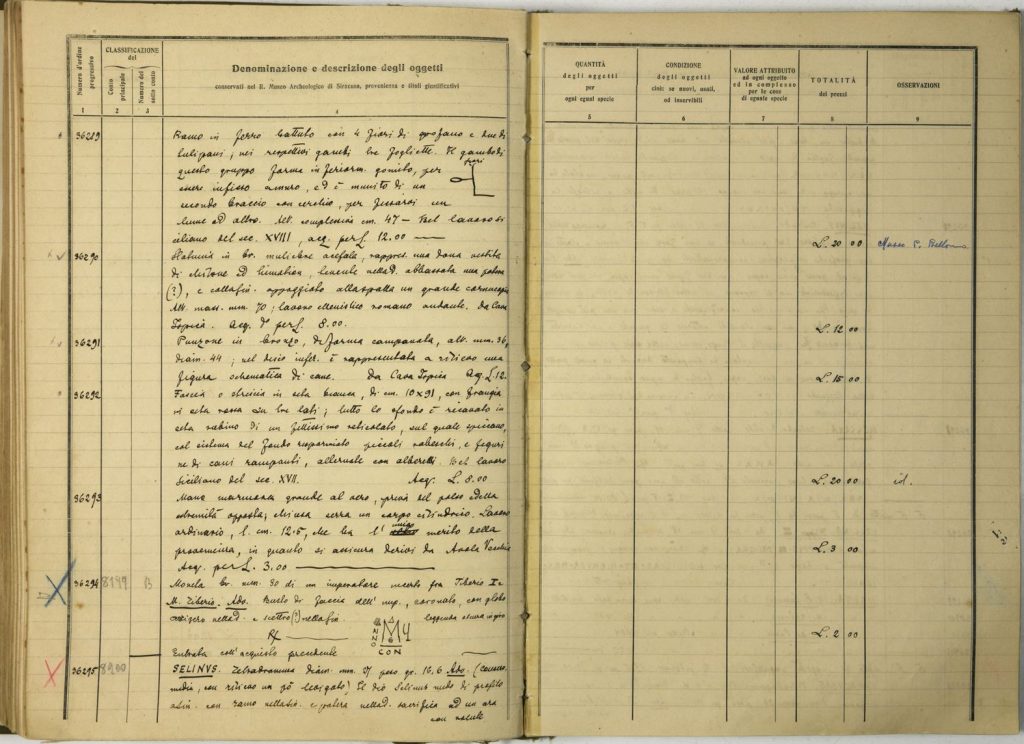 Numero d'ordine progressivo
CLASSIFICAZIONE
del
Conto principale
Numero del sotto conto
Denominazione e descrizione degli oggetti
conservati nel R. Museo Archeologico di Siracusa, provenienza e titoli giustificativi
1 2 3 4
36289 Ramo in ferro battuto con 4 fiori di garofano e due di
tulipani; nei rispettivi gambi tre fogliette. Il gambo di
questo gruppo forma inferiorm. gomito, per
fiori
essere infisso a muro, ed è munito di un
secondo braccio con cerchio, per fissarvi un
lume od altro. Alt. complessiva cm. 47 — Bel lavoro si-
ciliano del sec. XVIII, acq. per £ 12.00
36290 Statuina in br. muliebre acefala, rappres. una donna vestita
di chitone ed himation, tenente nella d. abbassata una patera
(?), e colla sin. appoggiato alla spalla un grande cornucopia
Alt. mass. mm. 70; lavoro ellenistico romano andante. Da Casa
Topica. Acq. per £. 8.00.
36291 Punzone in bronzo, di forma campanata, alt. mm. 36,
diam. 44; nel disco infer. è rappresentata a rilievo una
figura schematica di cane. Da Casa Topica Acq. £. 12.
36292 Fascia o striscia in seta bianca, di cm. 10 x 91, con frangia
in seta rossa su tre lati; tutto lo sfondo è ricavato in
seta rubino di un fittissimo reticolato, sul quale spiccano,
col sistema del fondo risparmiato piccoli rabeschi, e figuri-
ne di cani rampanti, alternate con alberetti. Bel lavoro
Siciliano del sec. XVII. Acq. £. 8.00
36293 Mano marmorea grande al vero, priva del polso e della
estremità opposta; chiusa serra un corpo cilindrico. Lavoro
ordinario, l. cm. 12.5, che ha l' unico merito della
provenienza, in quanto si assicura derivi da Avola Vecchia
Acq. per £. 3.00
36294 8199 B Moneta br. mm. 30 di un imperatore incerto fra Tiberio I e
M. Tiberio. Ado. Busto di faccia dell' imp., coronato, con globo
crucigero nella d. e scettro (?) nella sin. leggenda oscura in giro
R/ ANNO M CON
Entrata coll'acquisto precedente
36295 8200 SELINVS. Tetradramma diám. mm. peso gr. 16.6 Ado. (conser.
media, con rilievo un pò levigato) Il dio Selinus nudo di profilo
a sin. con ramo nella sin. e patera nella d. sacrifica ad un ara
con volute
QUANTITÀ
degli oggetti
per
ogni egual specie
CONDIZIONE
degli oggetti
cioè: se nuovi, usati,
od inservibili
VALORE ATTRIBUITO
ad ogni oggetto
ed in complesso
per le cose
di eguale specie
TOTALITÀ
dei prezzi
OSSERVAZIONI
5 6 7 8 9
£. 20 00 Museo P. Bellomo
£. 12 00
£. 15 00
£. 20 00 id.
£. 3 00
£. 2 00